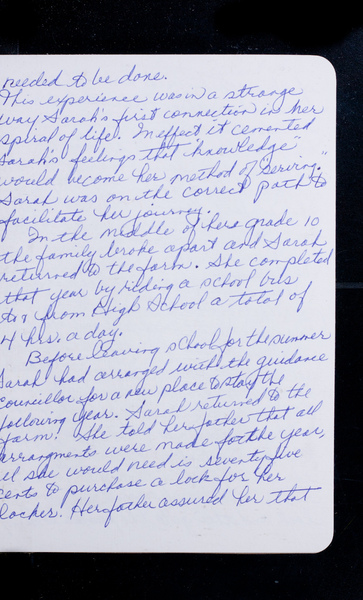 needed to be done.
This experience was in a strange
way Sarah's first connection in her
spiral of life. In effect it cemented
Sarah's feelings that "knowledge"
would become her method of "serving."
Sarah was on the correct path to
facilitate her journey.
In the middle of her grade 10
the family broke apart and Sarah
returned to the farm. She completed
that year by riding a school bus
to & from High School a total of
4 hrs. a day.
Before leaving school for the summer
Sarah had arranged with the guidance
councillor for a new place to stay the
following year. Sarah returned to the
farm. She told her father that all
arrangments were made for the year,
all she would need is seventy five
cents to purchase a lock for her
locker. Her father assured her that